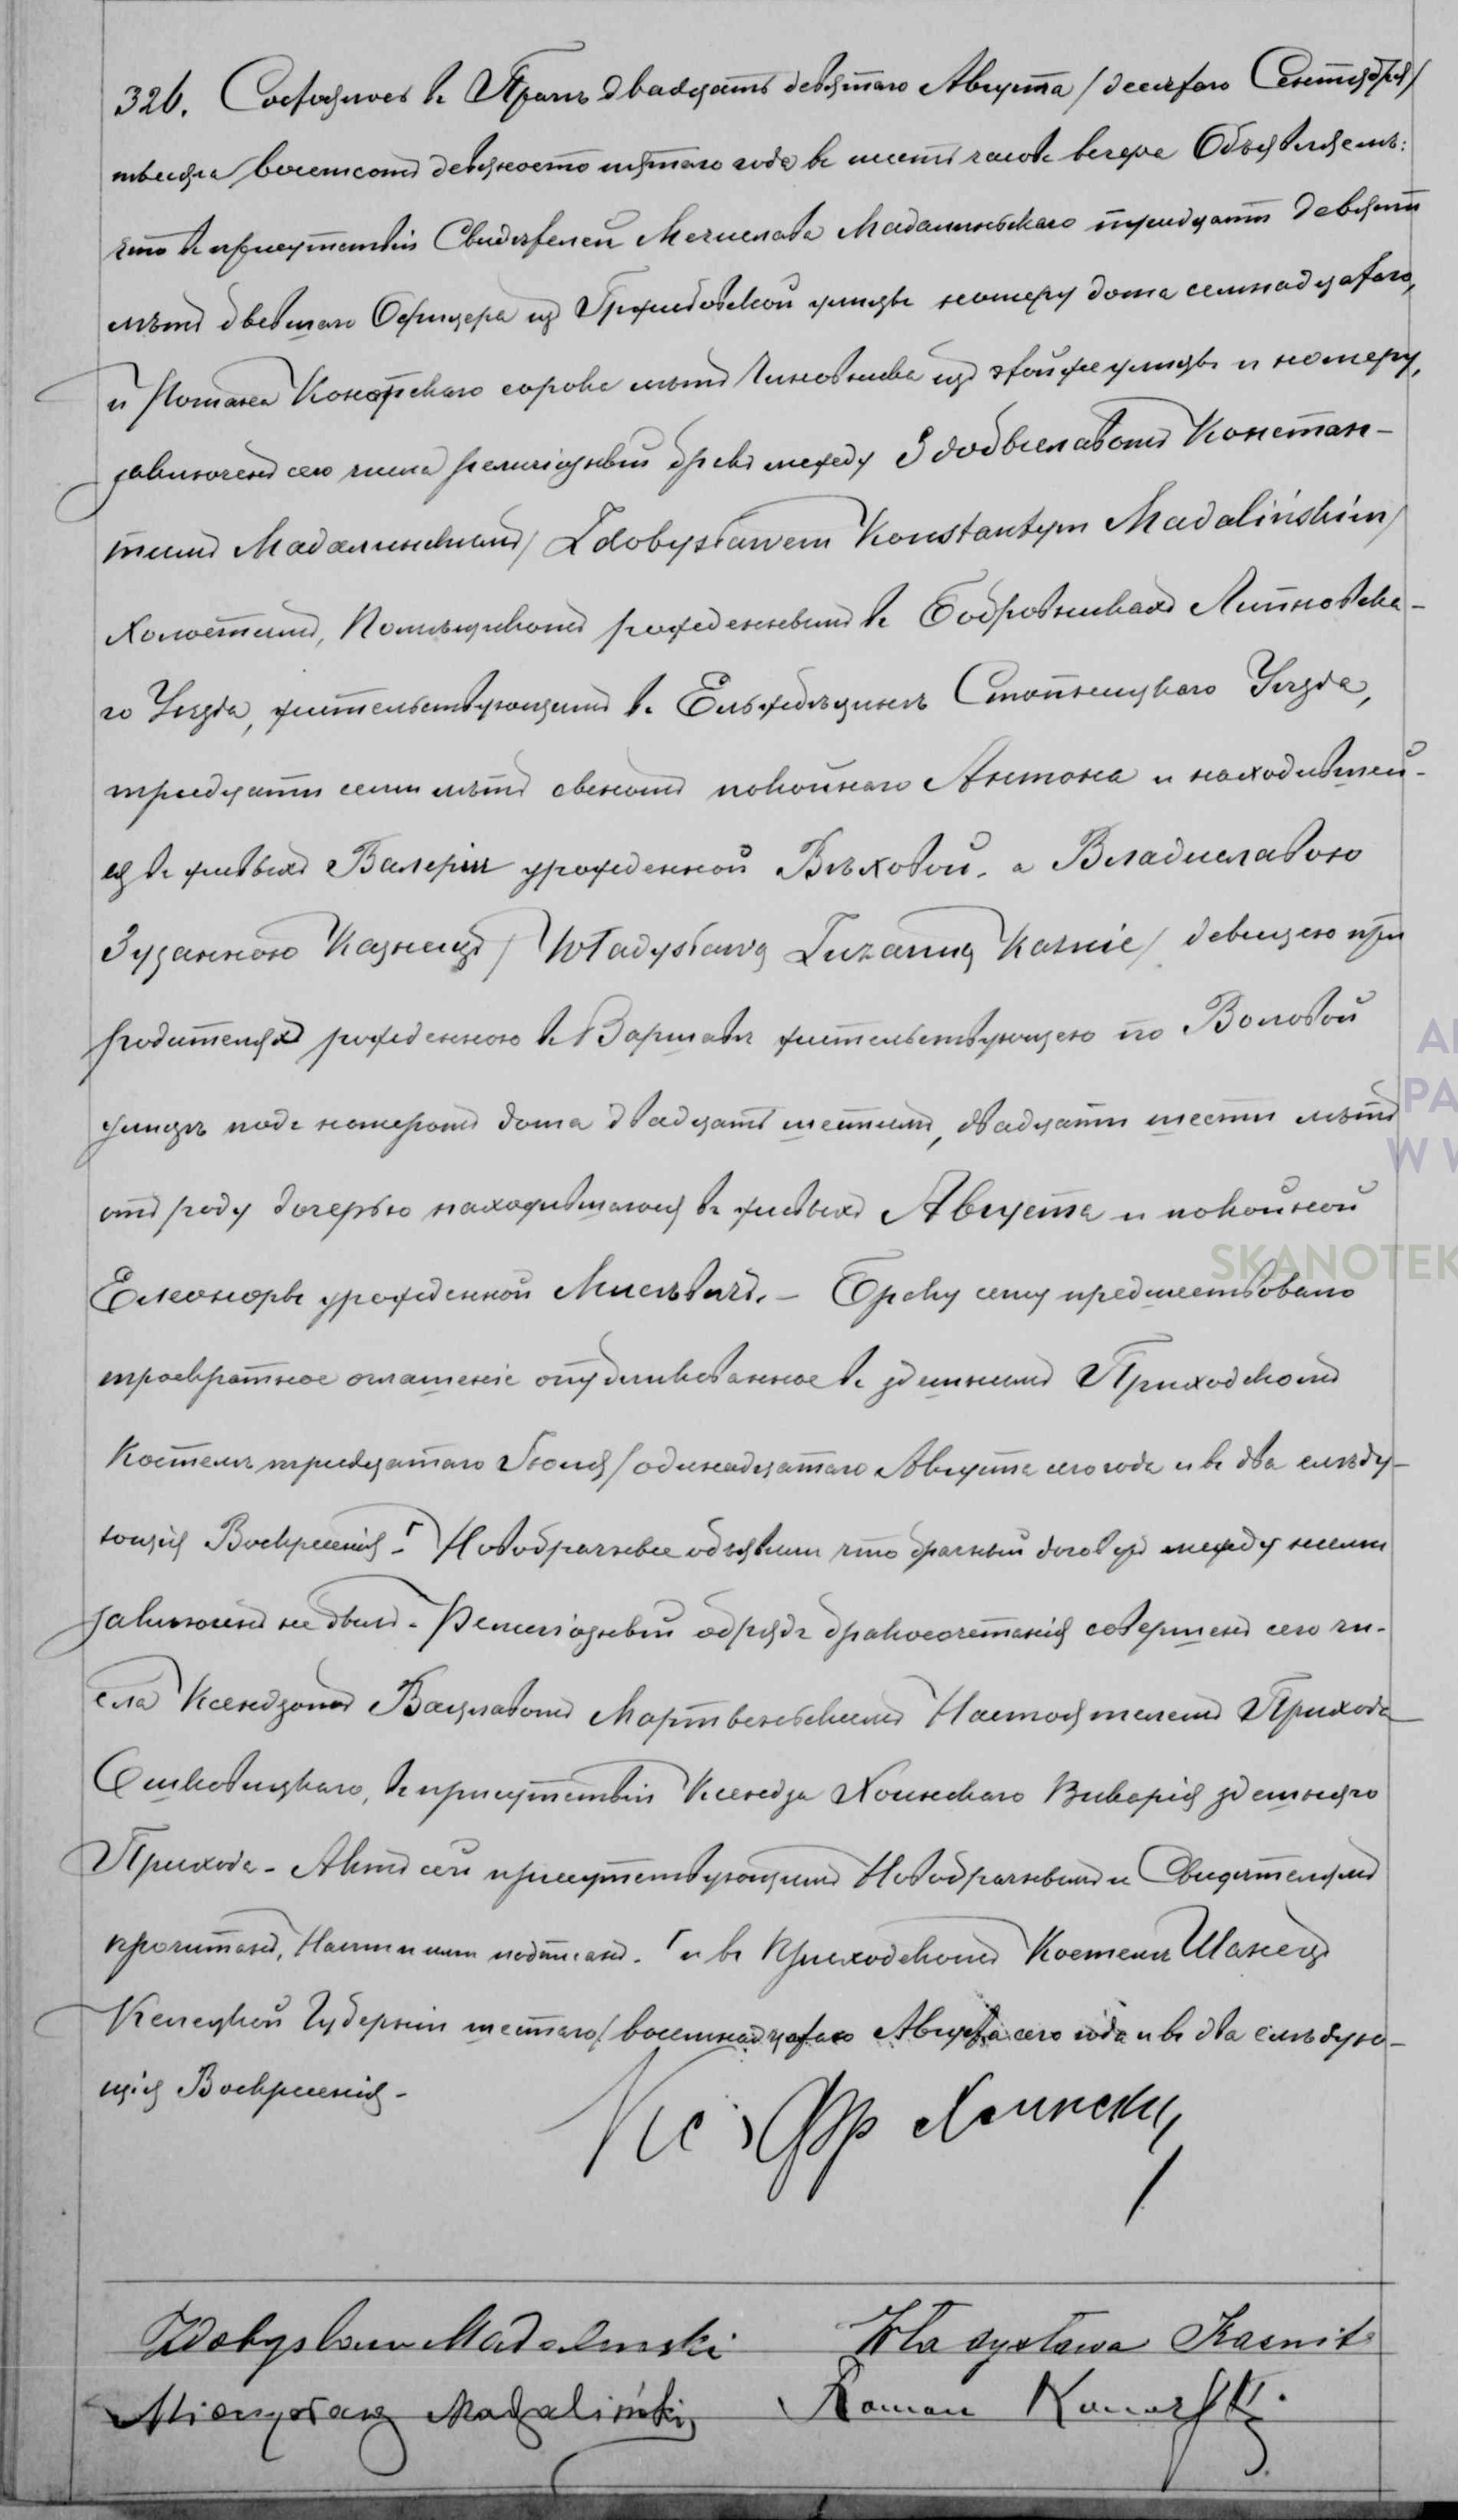 326. Состоялось въ Прагѣ двадцать девятаго Августа / десятаго Сентября /
тысяча восемсотъ девяносто пятаго года въ шесть часовъ вечера Объявляемъ:
что въ присутствіи Свидѣтелей Мечислава Мадалиньскаго тридцати девяти
лѣтъ бывшаго Офицера изъ улицы номеру дома семнадцатаго,
и Романа Конарскаго сорока лѣтъ Чиновника изъ этой же улицы и номеру,
заключенъ сего числа религіозный бракъ между Здобыславомъ Констан-
тымъ Мадалинскимъ / Zdobysławem Konstantym Madalińskim /
холостымъ, Помѣщикомъ рожденнымъ въ Бобровникахъ Липновска-
го Уѣзда, жительствующимъ въ Стопницкаго Уѣзда,
тридцати семи лѣтъ сыномъ покойнаго Антона и находившей-
ся въ живыхъ Валеріи урожденной Вѣховой. а Владиславою
Зузанною Казнецъ / Władysławą Zuzanną Kaznic / девицею при
родителяхъ рожденною въ Варшавѣ жительствующею по Воловой
улицѣ подъ номеромъ дома двадцать шестымъ, двадцати шести лѣтъ
отъ роду дочерью находившагося въ живыхъ Августа и покойной
Елеоноры урожденной . – Браку сему предшествовало
троекратное оглашеніе опубликованное въ здѣшнемъ Приходскомъ
Костелѣ тридцатаго Іюля / одинадцатаго Августа сего года и въ два слѣду-
ющія Воскресенія – Г Новобрачные объявили что брачный договоръ между ними
заключенъ не былъ. Религіозный обрядъ бракосочетанія совершенъ сего чи-
сла Ксендзомъ Вацлавомъ Настоятелемъ Прихода
, въ присутствіи Ксендза Хоинскаго Викарія здѣшняго
Прихода – Актъ сей присутствующимъ Новобрачнымъ и Свидѣтелямъ
прочитанъ, Нами и ими подписанъ. Г и въ Приходскомъ Костелѣ Шанецъ
Келецкой Губерніи шестаго / восемнадцатаго Августа сего года и въ два слѣдую-
щія Воскресенія –
Кс. Фр Хоински
Zdobysław Madaliński Władysława Kaznic
Mieczysław Madaliński Roman Konarski